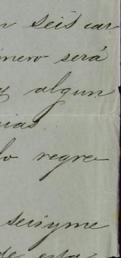 seis car
nero será
algun
ias.
lo regre
seis y me
de esta